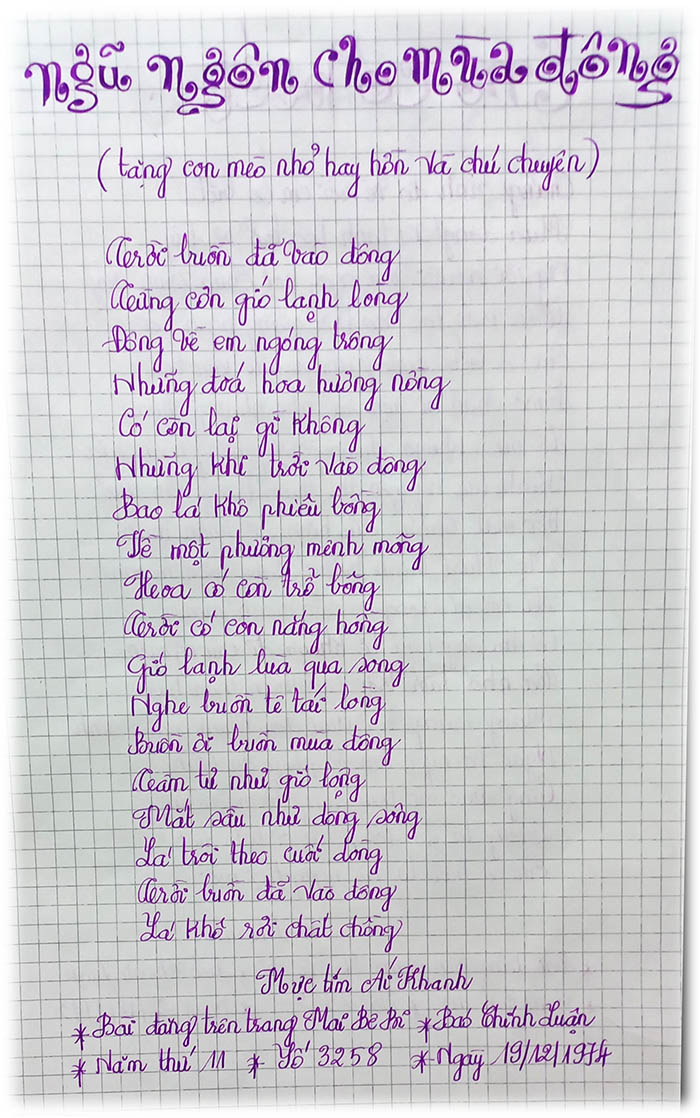 ngũ ngôn cho mùa đông
(tặng con mèo nhỏ hay hờn và chú chuyên)
Trời buồn đã vào đông
Tháng còn gió lạnh lòng
Đông về em ngóng trông
Những đoá hoa hướng nồng
Có còn lại gì không
Nhưng khi trời vào đông
Bao lá khô phiêu bồng
Về một phương mênh mông
Hoa có còn trổ bông
Trời có còn nắng hồng
Gió lạnh lùa qua song
Nghe buồn tê tái lòng
Buồn ơi buồn mùa đông
Tâm tư như gió lộng
Mắt sầu như dòng sông
Lá trôi theo cuối dòng
Trời buồn đã vào đông
Lá khô rơi chất chồng
Mực tím Ái Khanh
* Bài đăng trên trang Mai Bê Bi * Báo Chính Luận
* Năm thứ 11 * Số 3258 * Ngày 19/12/1974